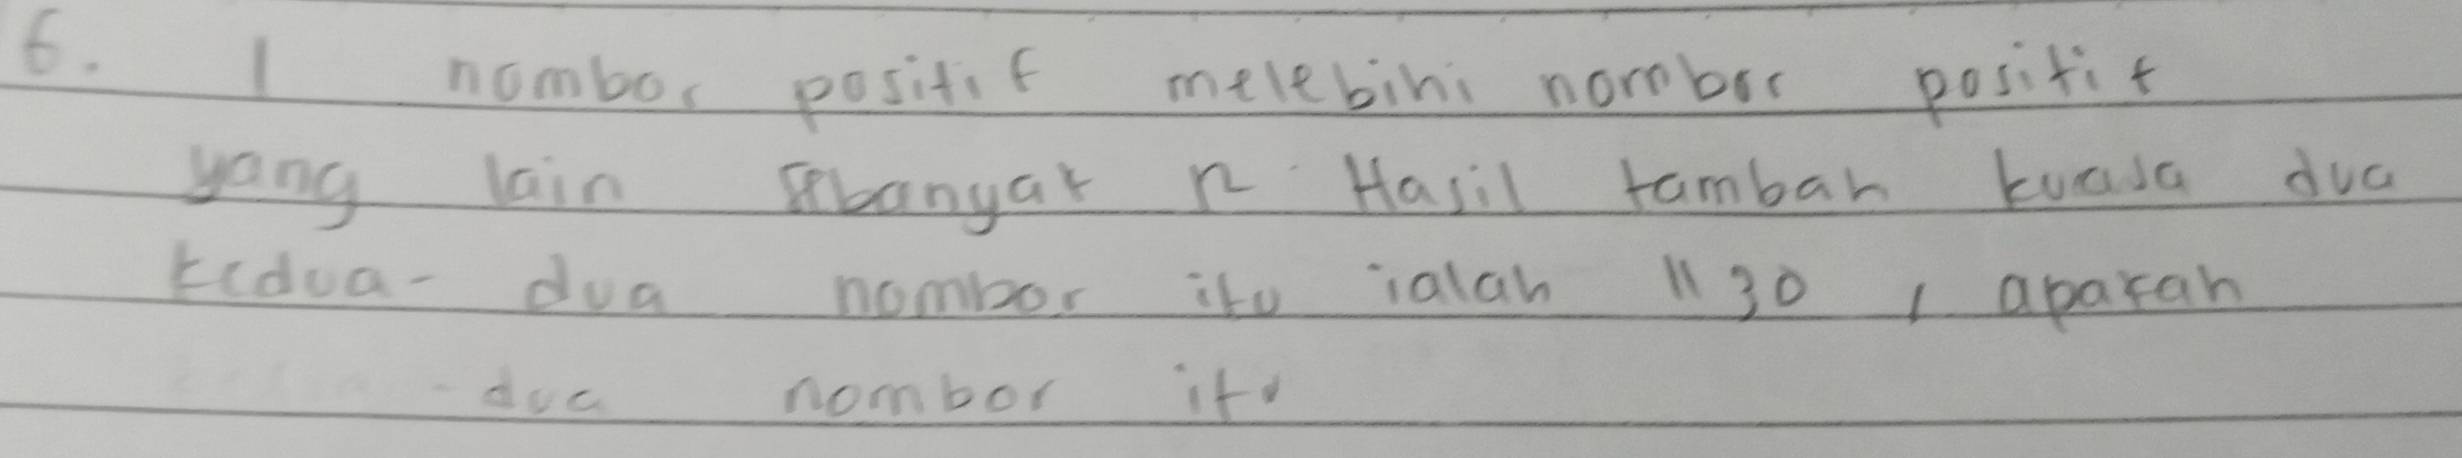 6. 1 nombor positif melebihi nombor positif
yang lain sebanyak n. Hasil tambah kuasa dua
kedua-dua nombor itu ialah 1130, apakah
-dua nombor itu